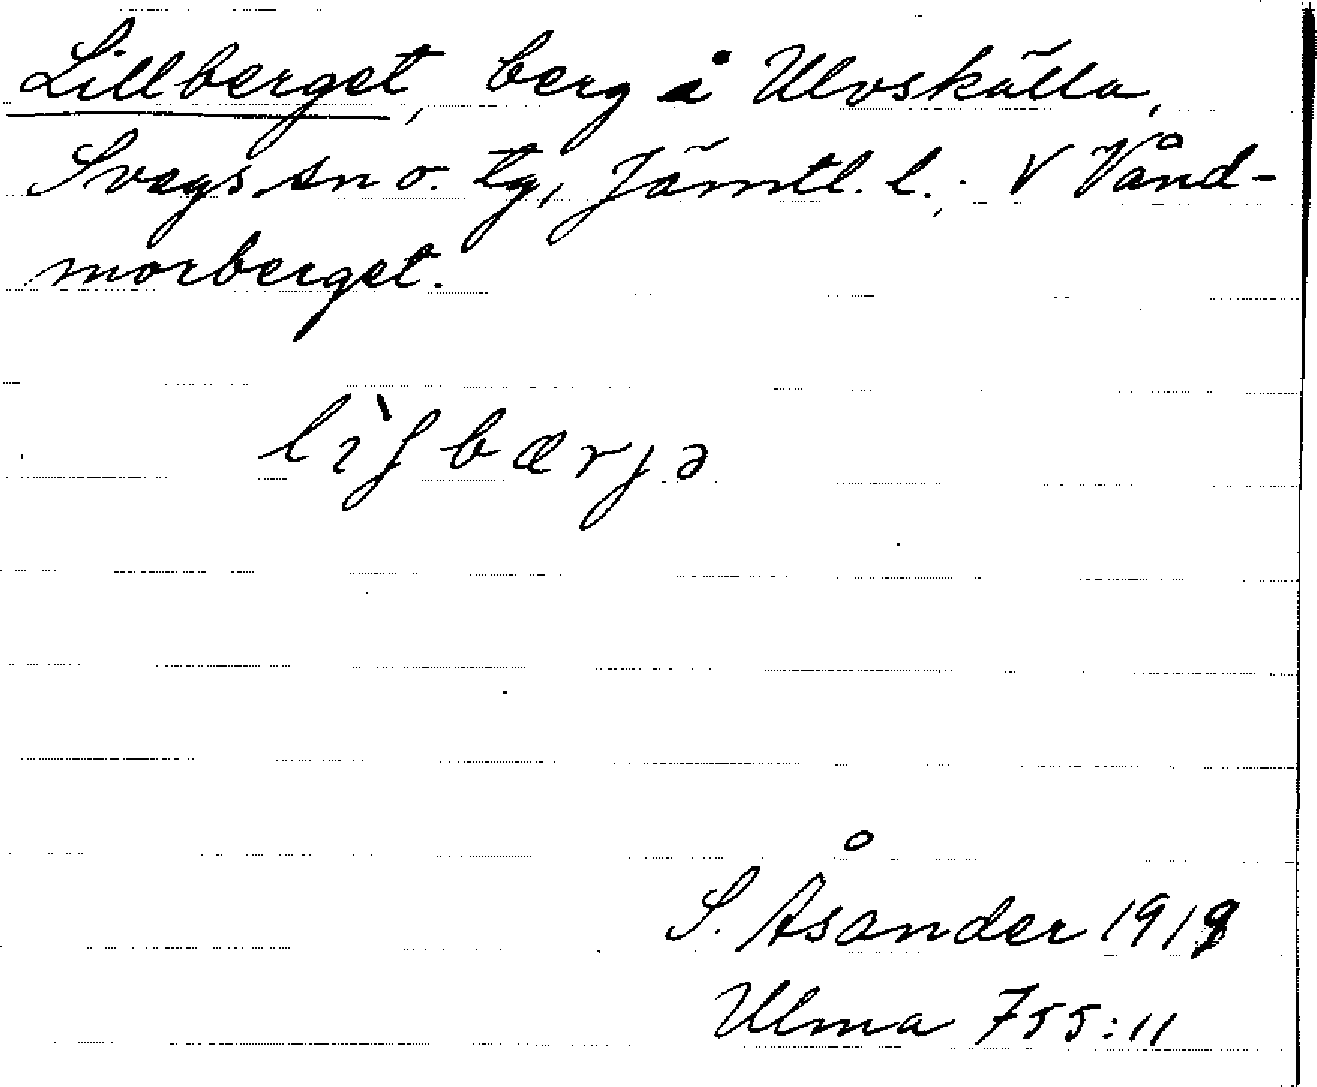 Lillberget, berg å Ulvskälla,
Svegs sn o. tg, Jämtl. l.; V Vånd-
morberget.
lìʃbærjə
S. Åsander 1919
Ulma 755:11